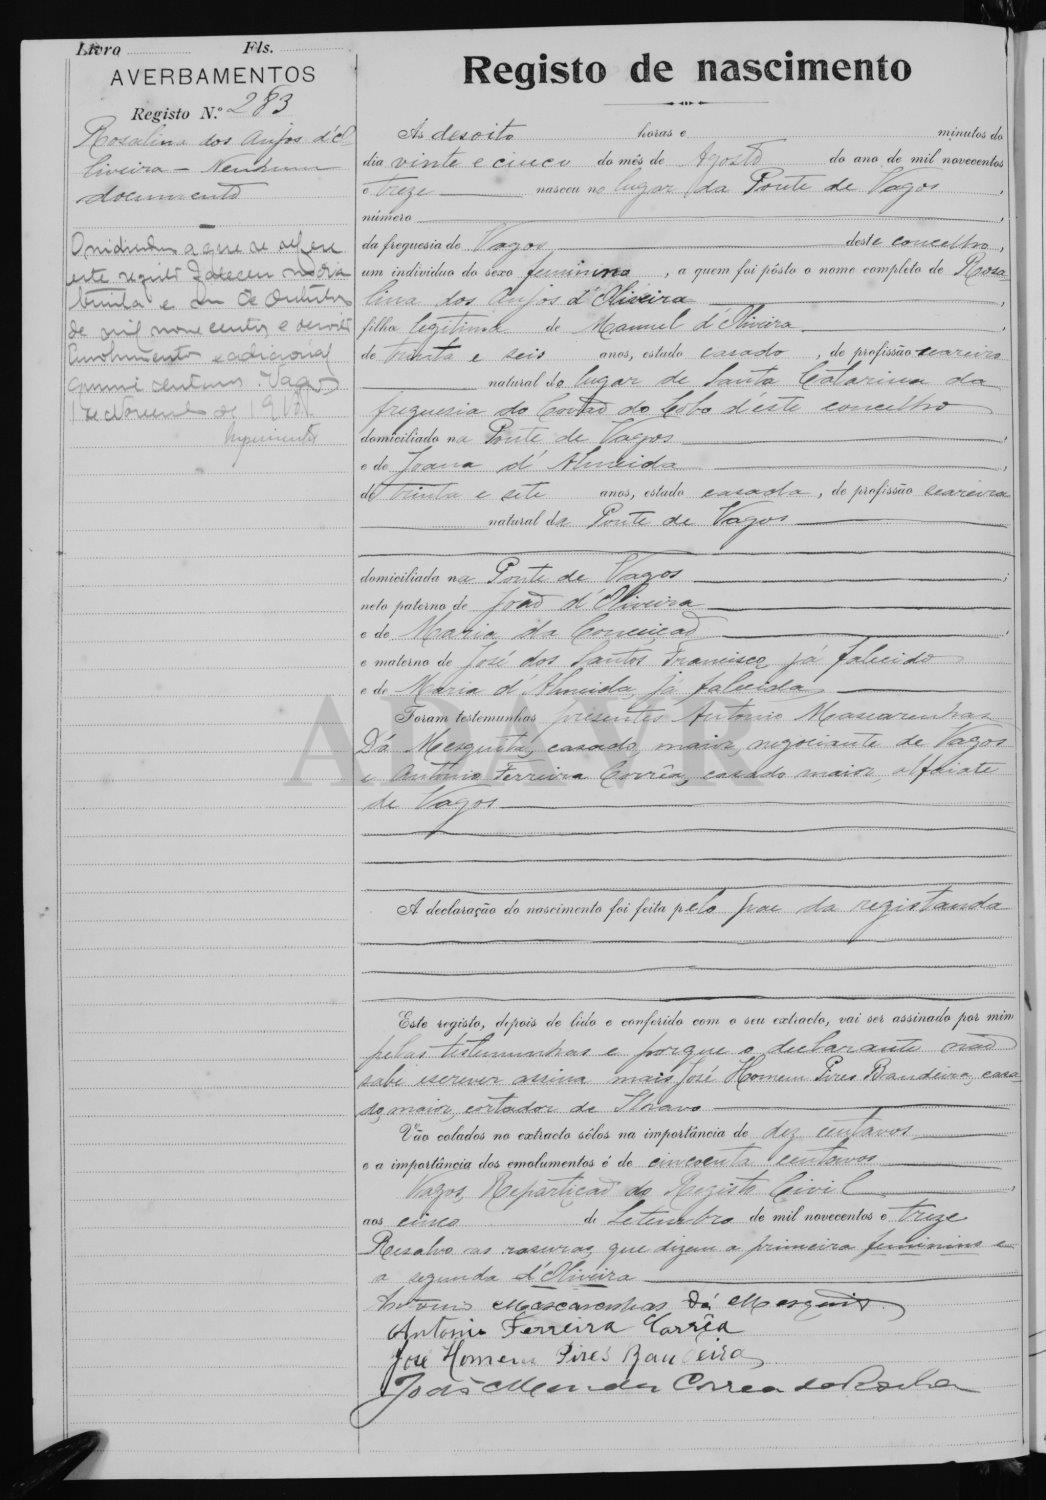 Livro Fls.
AVERBAMENTOS
Registo N.º 283
Rosalina dos Anjos d'O
liveira — Nenhum
documento
O individuo a que se refere
este registo faleceu no dia
trinta e um de Outubro
de mil nove centos e
Emolumentos e adicional
centavos. Vagos,
1 de Novembro de 19
Registo de nascimento
Às desoito horas e minutos do
dia vinte e cinco do mês de Agosto do ano de mil novecentos
e treze nasceu no lugar da Ponte de Vagos,
número
da freguesia de Vagos deste concelho,
um individuo do sexo feminino, a quem foi pôsto o nome completo de Rosa-
lina dos Anjos d'Oliveira
filha legitima de Manuel d'Oliveira
de trinta e seis anos, estado casado, de profissão seareiro
natural do lugar de Santa Catarina da
freguesia do Covão do Lobo d'este concelho
domiciliado na Ponte de Vagos
e de Joana d'Almeida
de trinta e sete anos, estado casada, de profissão seareira
natural da Ponte de Vagos
domiciliada na Ponte de Vagos
neto paterno de João d'Oliveira
e de Maria da Conceição
e materno de José dos Santos Francisco, já falecido
e de Maria d'Almeida, já falecida
Foram testemunhas presentes António Mascarenhas
Dá Mesquita, casado, maior, negociante de Vagos
e António Ferreira Corrêa, casado maior, alfaiate
de Vagos
ADAVR
A declaração do nascimento foi feita pelo pae da registanda
Este registo, depois de lido e conferido com o seu extracto, vai ser assinado por mim
pelas testemunhas e porque o declarante não
sabe escrever assina mais José Homem Pires Bandeira, casa-
do, maior, cortador de
Vão colados no extracto sêlos na importância de dez centavos
e a importância dos emolumentos é de cincoenta centavos
Vagos, Repartição do Registo Civil
aos cinco de Setembro de mil novecentos e treze
Resalvo as rasuras, que dizem a primeira feminino e
a segunda d'Oliveira
Antonio Mascarenhas Dá Mesquita
Antonio Ferreira Corrêa
José Homem Pires Bandeira
João Mendes Correa da Rocha